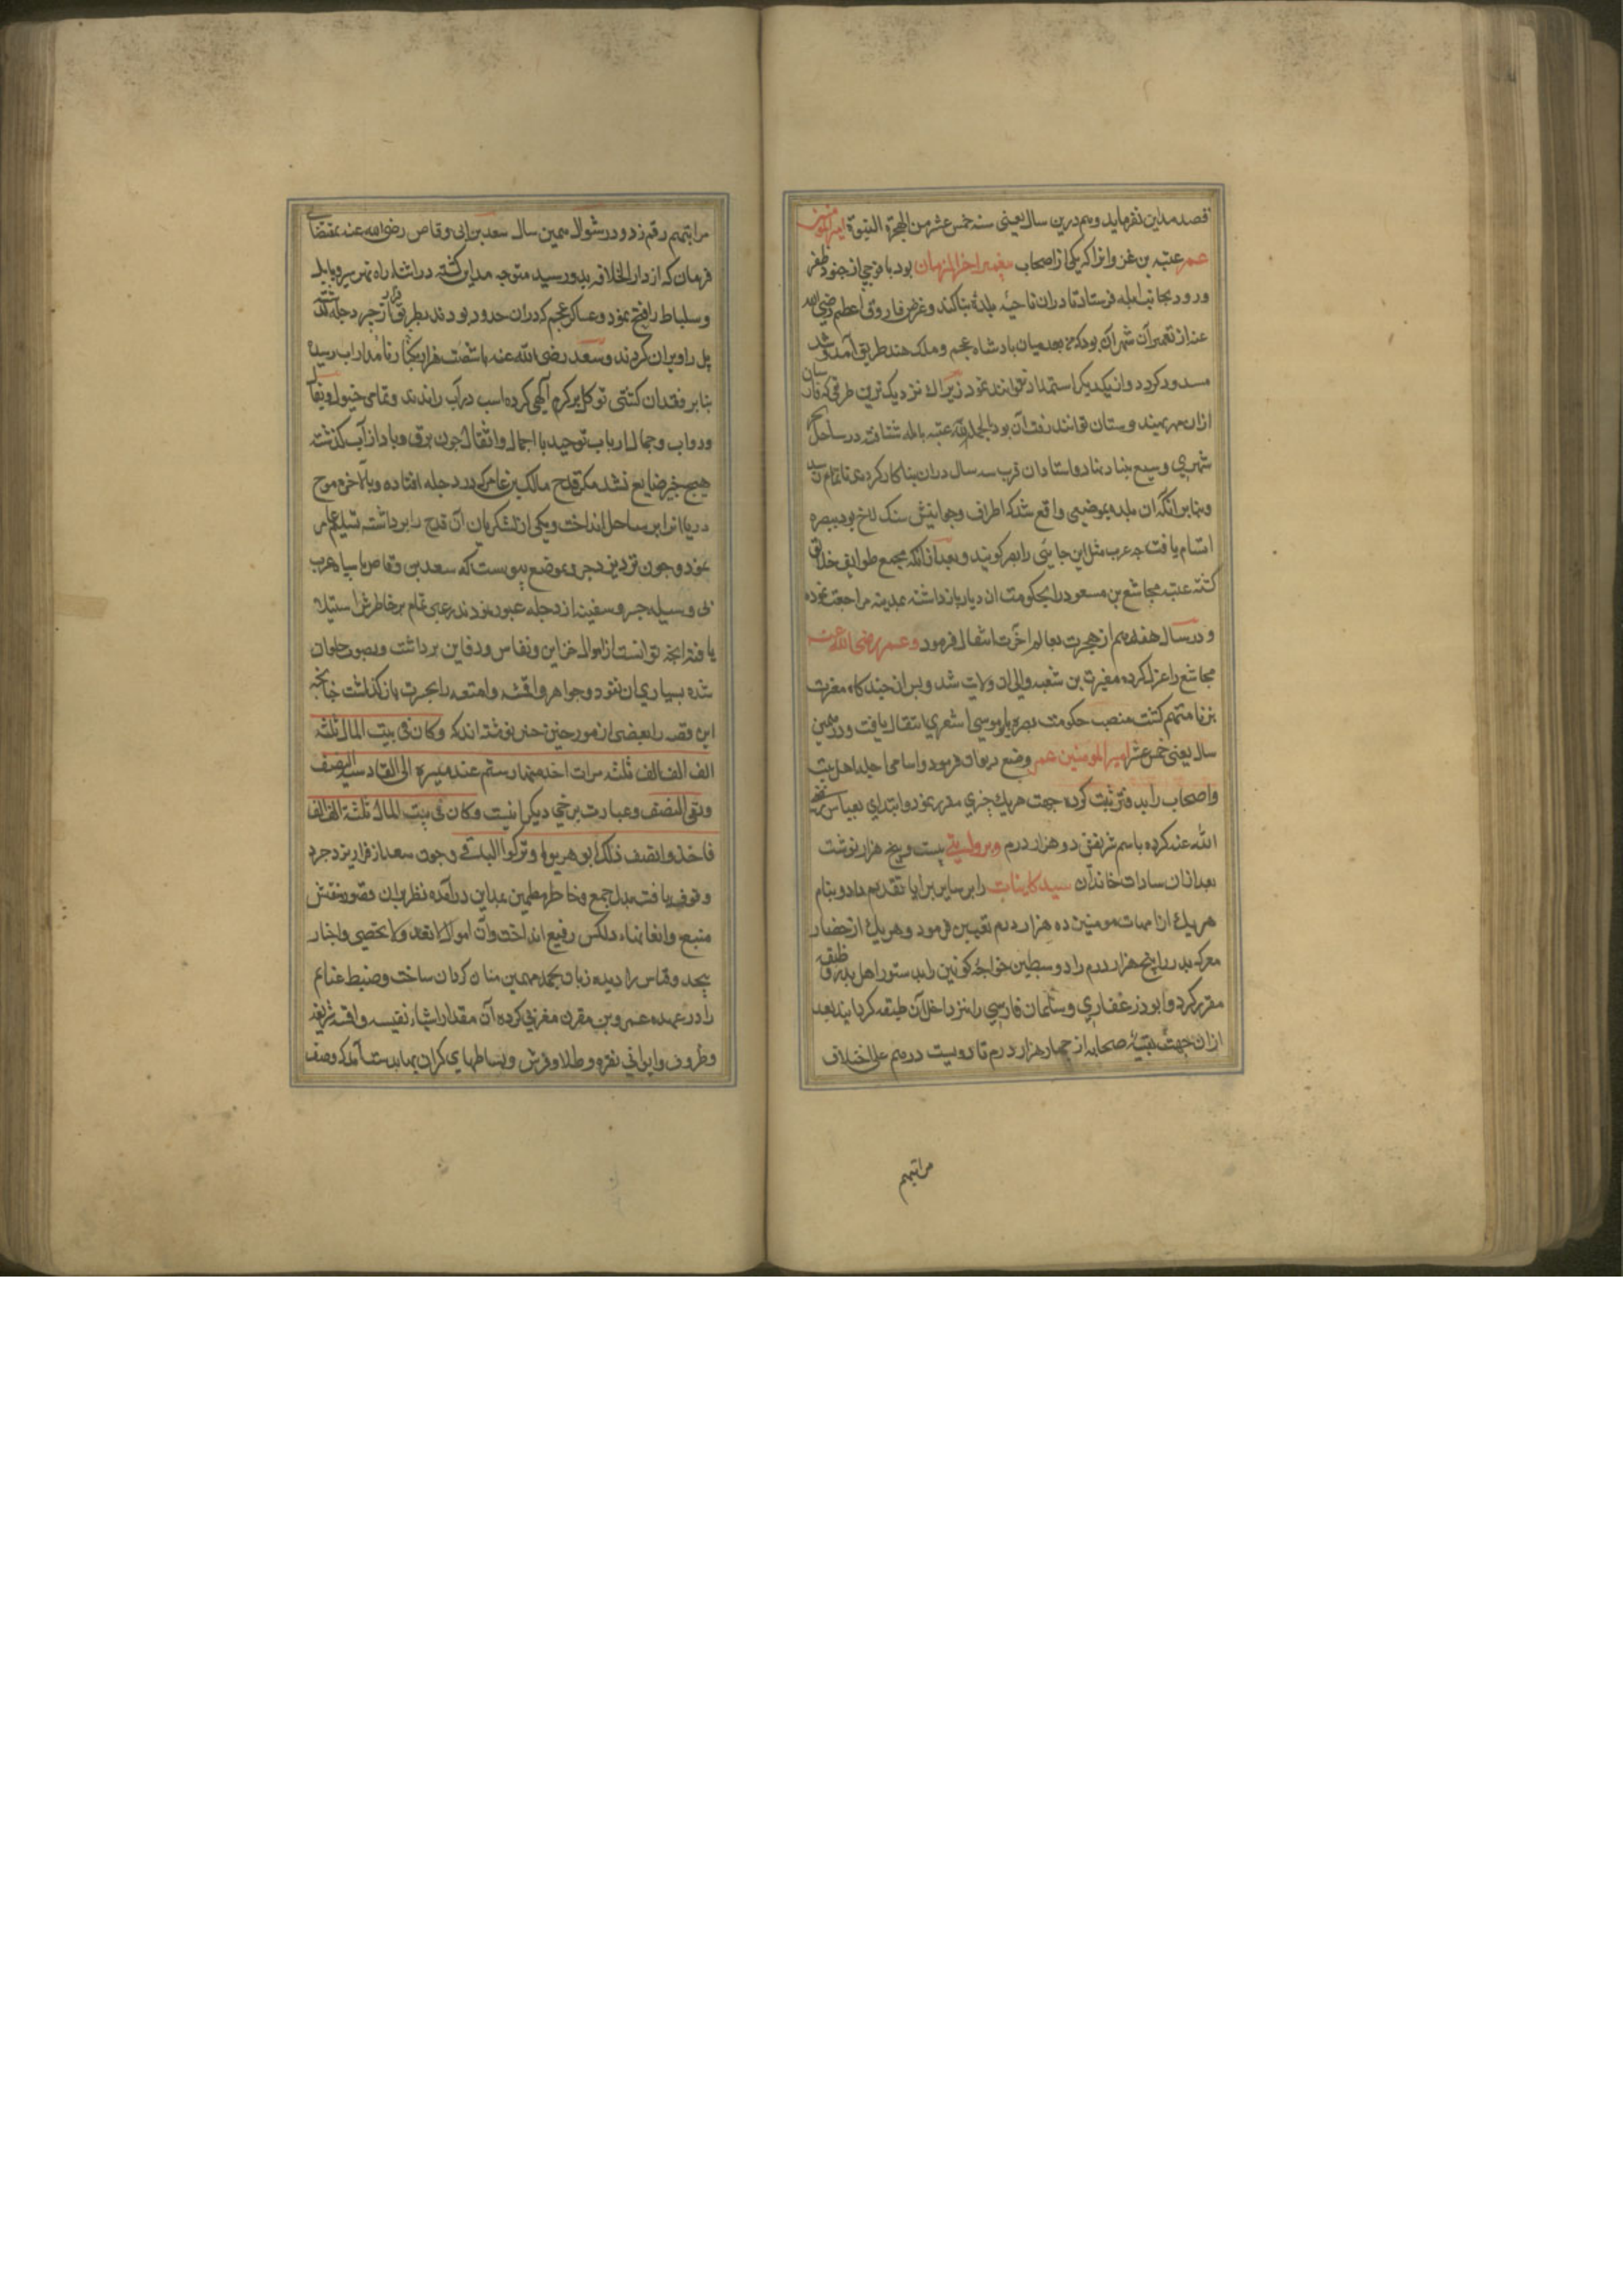 قصد مداین نفرماید و هم درین سال یعنی سنه خمس عشر من الهجرة النبویة امیرالمومنین
عمر عتبه بن غزوانرا که یکی از اصحاب پیغمبر اخرالزمان بود با فوجی از جنود ظفر
ورود بجانب ابله فرستاد تا دران ناحیه بلدۀ بنا کند و غرض فاروق اعظم رضی الله
عنه از تعمیر آن شهر آن بود که من بعد میان پادشاه عجم و ملک هند طریق آمد و شد
مسدود گردد و از یکدیگر استمداد نتوانند نمود زیرا که نزدیک ترین طرقی که فارسیان
ازان ممر بهندوستان توانند رفت آن بود القصه عتبه بابله شتافته در ساحل
شهری وسیع بنیاد نهاد و استادان قرب سه سال دران بنا کار کردند تا تمام شد
و بنابر آنکه ان بلده بموضعی واقع شد که اطراف و جوانبش سنک لاخ بود ببصره
اتسام یافت چه عرب مثل این جایی را بصره گویند و بعد از انکه مجمع طوایف خلایق
گشت عتبه مجاشع بن مسعود را بحکومت ان دیار باز داشته بمدینه مراجعت نموده
و در سال هفدهم از هجرت بعالم اخرت انتقال فرمود و عمر رضی الله عنه
مجاشع را عزل کرده مغیرة بن شعبه والی ان ولایت شد و پس از چندگاه مغیره
بزنا متهم گشت منصب حکومت بصره بابو موسی اشعری انتقال یافت و در همین
سال یعنی خمس عشر امیرالمومنین عمر وضع دیوان فرمود و اسامی اجله اهل بیت
و اصحاب را بدفتر ثبت کرده جهت هریک چیزی مقرر نمود و ابتدای بعباس رضی
الله عنه کرده باسم شریفش دوهزار درم و بروایتی بیست و پنج هزار نوشت
بعد ازان سادات خاندان سید کاینات را بر سایر برایا تقدیم داد و بنام
هریک از امهات مومنین ده هزار درم تعیین فرمود و هریک از حضار
معرکه بدر را پنج هزار درم داد و سبطین خواجه کونین را بدستور اهل بدر وظیفه
مقرر کرد و ابوذر غفاری و سلمان فارسی را نیز داخل آن طبقه گردانید بعد
ازان جهت بقیۀ صحابه از چهار هزار درم تا دویست درهم علی اختلاف
مراتبهم
مراتبهم رقم زد و در شوال همین سال سعد بن ابی وقاص رضی الله عنه بمقتضای
فرمان که از دار الخلافه بدو رسید متوجه مداین گشته در اثناء راه نهر سیر و بابل
و ساباط را فتح نمود و عساکر عجم که دران حدود بودند بطریق فرار از جسر دجله گذشته
پل را ویران کردند و سعد رضی الله عنه با شصت هزار کس بکنار نامدار آب رسیده
بنابر فقدان کشتی توکل بر کرم الهی کرده اسب در آب راندند و تمامی خیول و بغال
و دواب و جمال ارباب توحید با اجمال و اثقال چون برق و باد از آب گذشته
هیچ چیز ضایع نشد مگر قدح مالک بن عامر که در دجله افتاده و بالاخره موج
دریا انرا بر ساحل انداخت و یکی از لشکریان آن قدح را برداشته تسلیم عامر
نمود و چون نزد یزدجرد بوضوح پیوست که سعد بن وقاص با سپاه عرب
بی وسیله جسر و سفینه از دجله عبور نمودند رعبی تمام بر خاطرش استیلا
یافته انچه توانست از اموال خزاین و نفایس و دفاین برداشت و بصوب حلوان
شده بسیاری از نقود و جواهر و اقمشه و امتعه را بحسرت باز گذاشت چنانچه
این قصه را بعضی از مورخین چنین نوشته اند که وکان فی بیت المال ثلثة
الف الف الف ثلث مرات اخذ منها رستم عند مسیره الی القادسیه النصف
وبقی النصف و عبارت برخی دیگر اینست وکان فی بیت المال ثلثة الف الف
فاخذوا نصف ذلک ... هربوا وترکوا الباقی و چون سعد از فرار یزدجرد
وقوف یافت بدل جمع و خاطر مطمین بمداین درآمده نظر بران قصور منقش
منیع و انغابناء دلکش رفیع انداخت و آن اموال لاتعد ولاتحصی و اخبار
بیحد و قیاس را دیده زبان بحمد مهیمن منان گردان ساخت و ضبط غنایم
را در عهده عمرو بن مقرن مغربی کرده آن مقدار اشیاء نفیسه و اقمشه شریفه
و ظروف و اوانی نقره و طلا و فرش و بساطهای گران بها بدست آمد که وصف